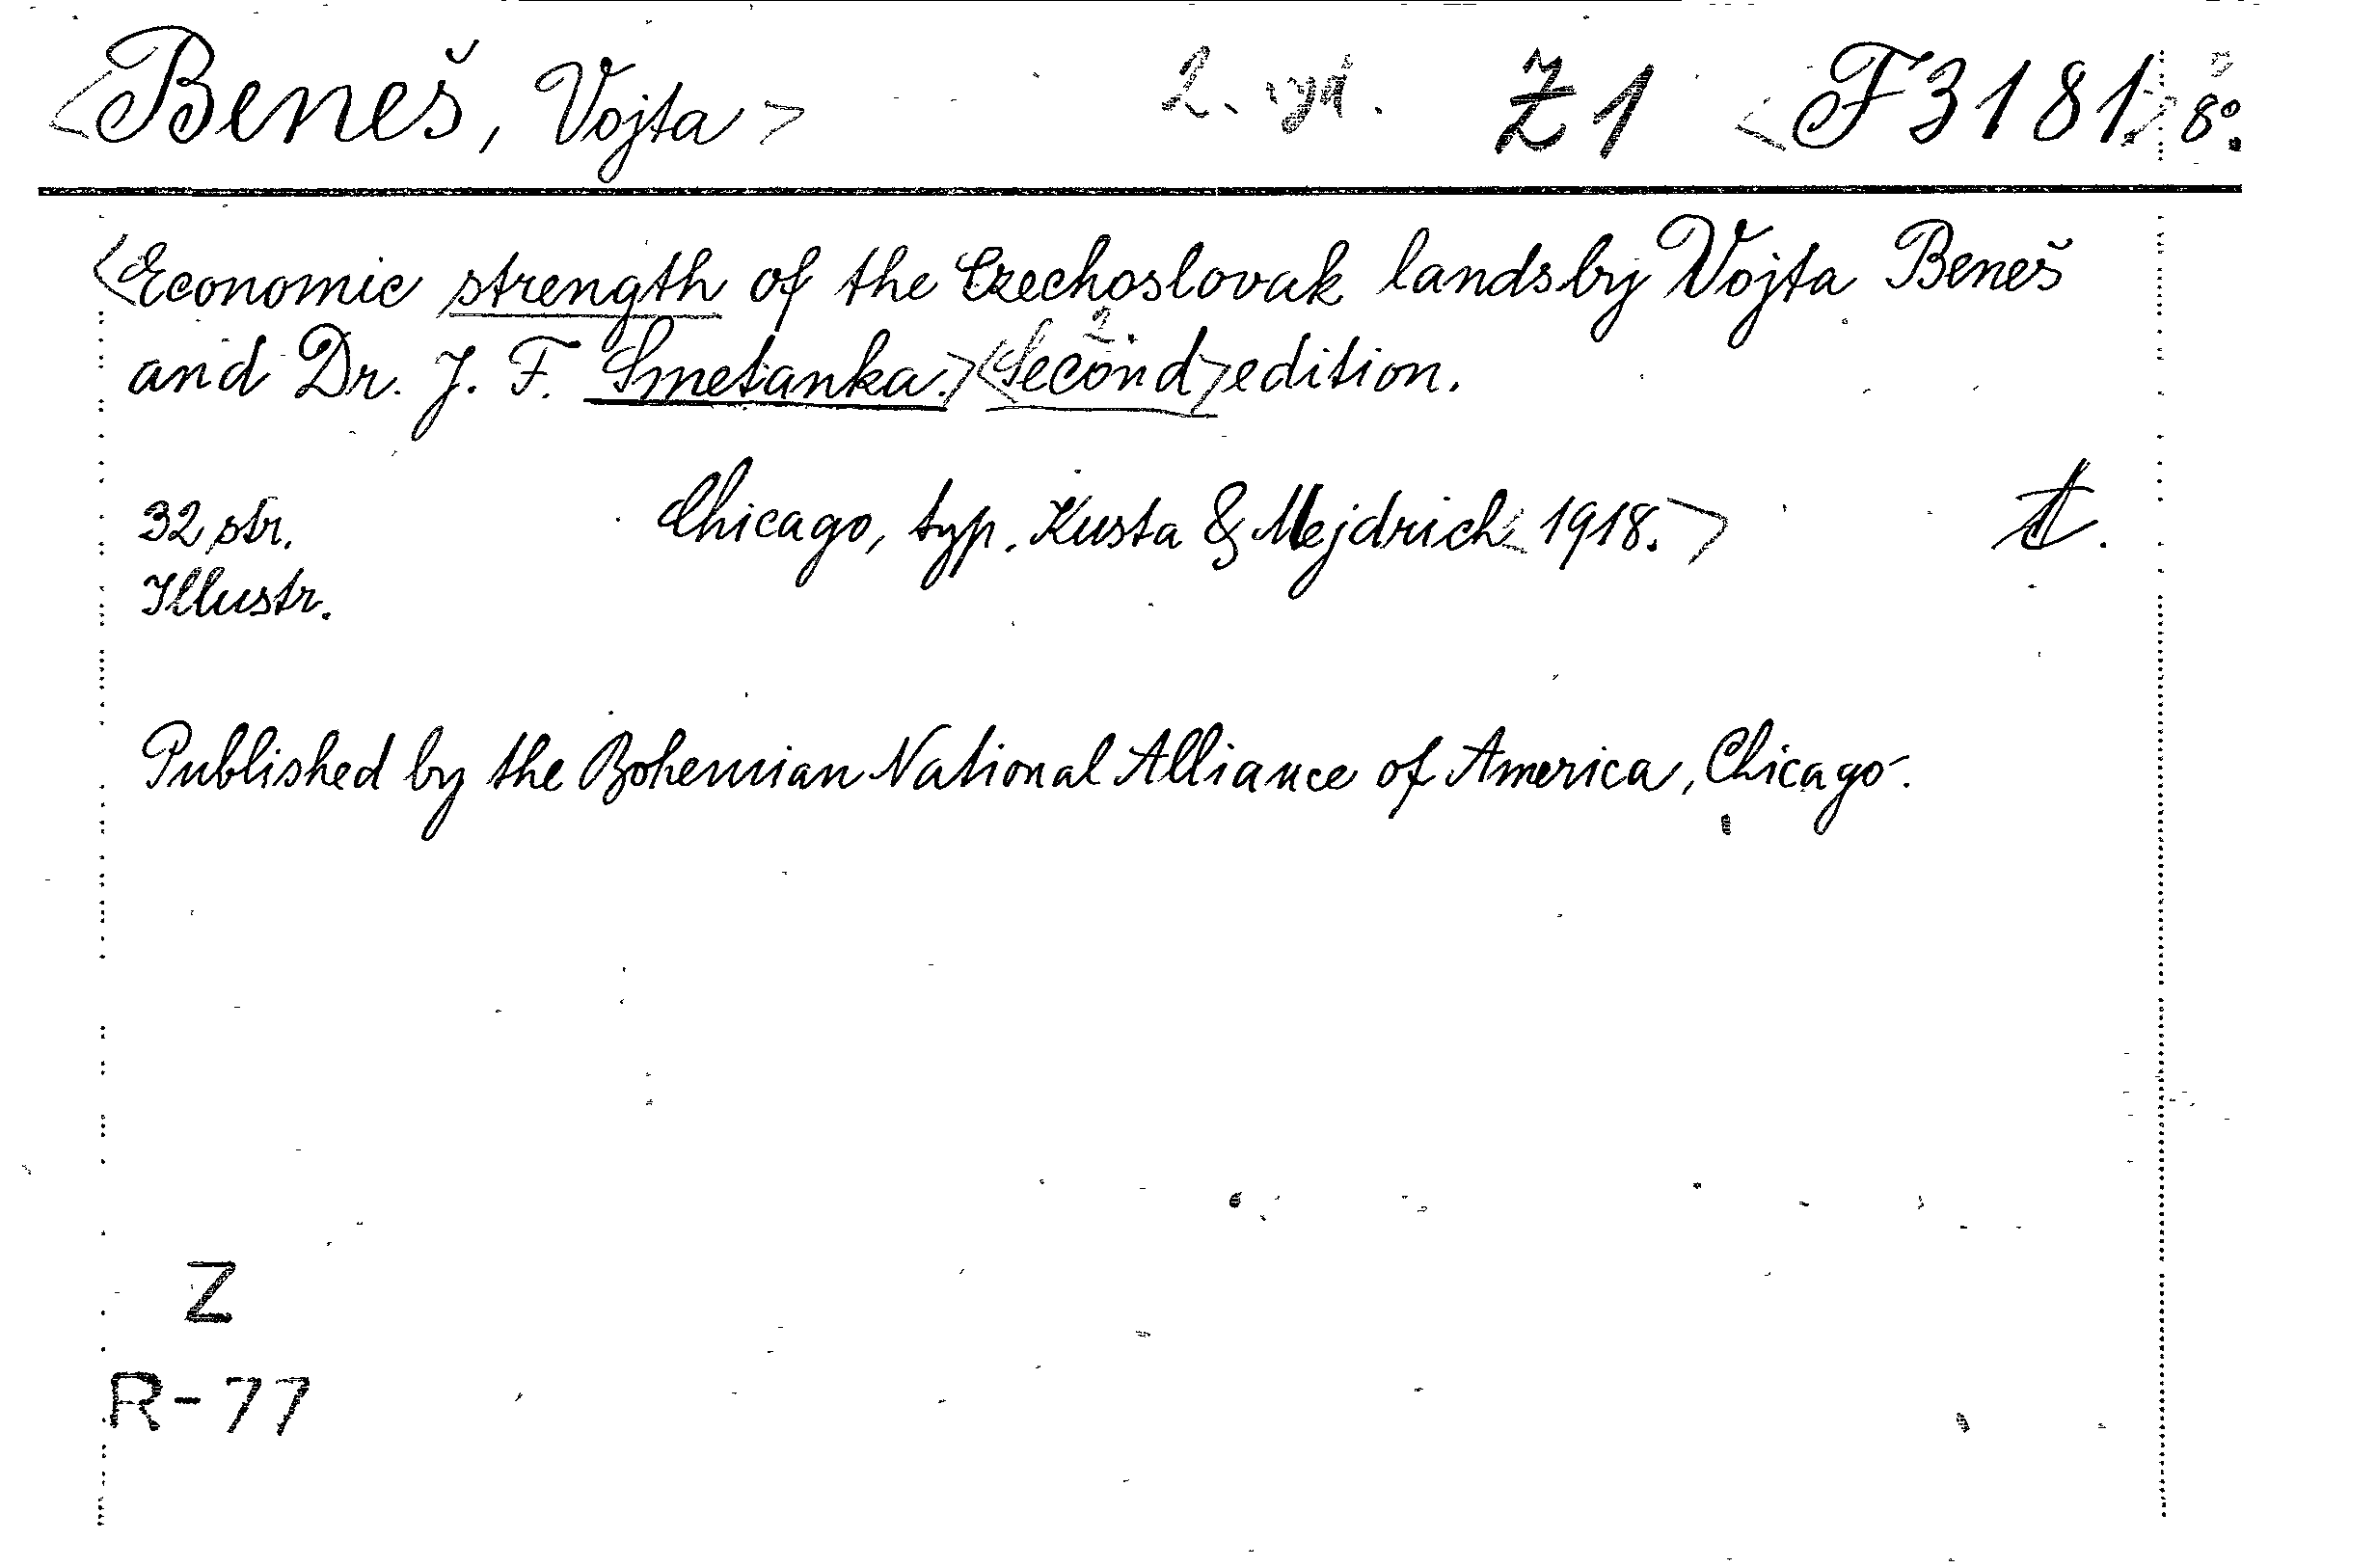 <Beneš, Vojta> 2. vyd. Z1 <F3181> 8°.
<Economic strength of the Czechoslovak lands by Vojta Beneš
and Dr. J. F. Smetanka.> <Second> edition.
2.
32 str. Chicago, typ. Kusta & Mejdrich <1918.>
Illustr.
Published by the Bohemian National Alliance of America, Chicago.
Z
R-77